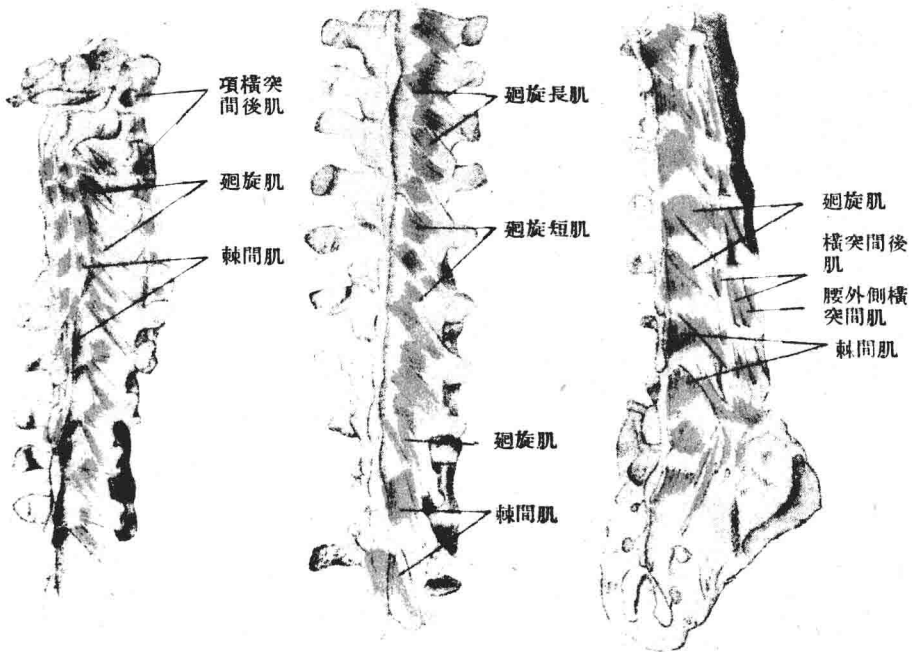 項橫突
間後肌
廻旋肌
棘間肌
廻旋長肌
廻旋短肌
廻旋肌
棘間肌
廻旋肌
橫突間後
肌
腰外側橫
突間肌
棘間肌